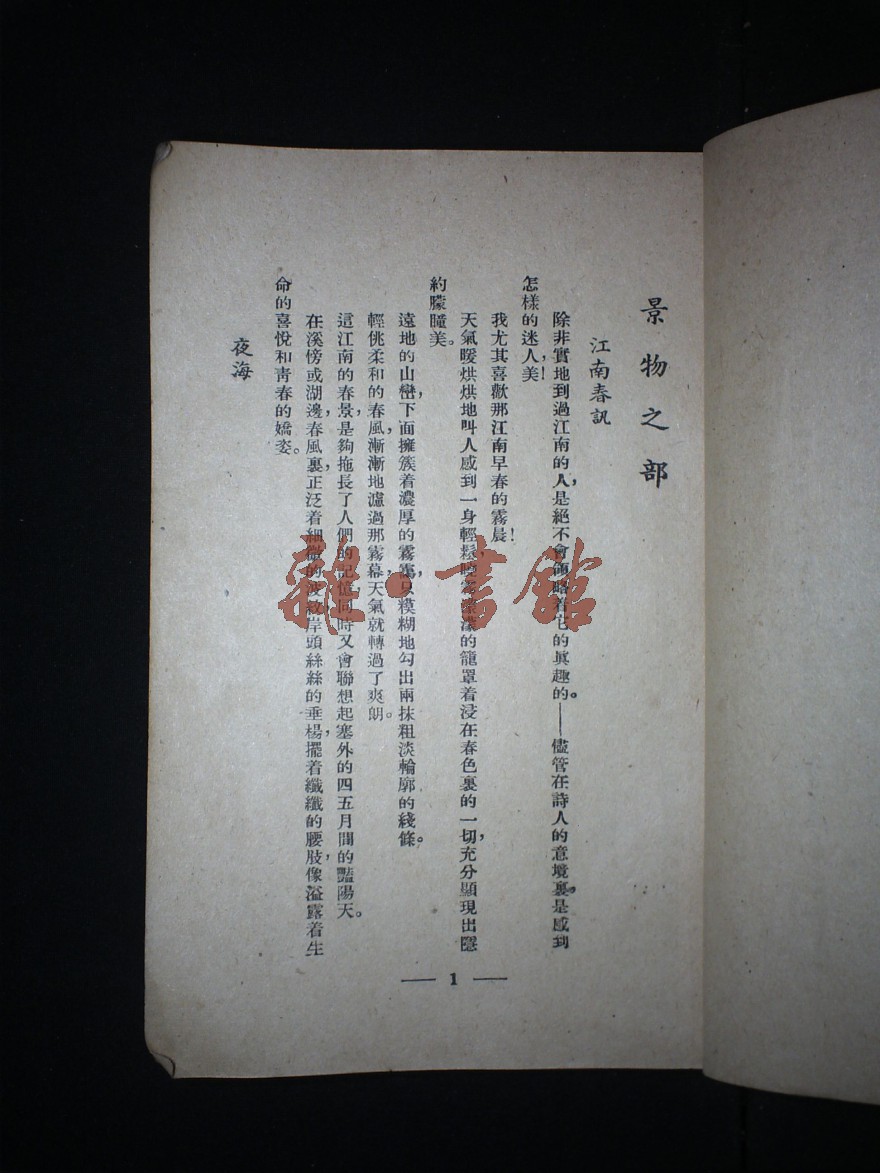 景物之部
江南春訊
除非實地到過江南的人，是絕不會領略着它的眞趣的。——儘管在詩人的意境裏，是感到
怎樣的迷人，美！
我尤其喜歡那江南早春的霧晨！
天氣暖烘烘地叫人感到一身輕鬆，曉霧濛濛的籠罩着浸在春色裏的一切，充分顯現出隱
約朦朣美。
遠地的山巒，下面擁簇着濃厚的霧靄，只糢糊地勾出兩抹粗淡輪廓的綫條。
輕佻柔和的春風，漸漸地濾過那霧幕，天氣就轉過了爽朗。
這江南的春景，是夠拖長了人們的記憶，同時又會聯想起塞外的四五月間的豔陽天。
在溪傍或湖邊，春風裏，正泛着細微的波紋，岸頭絲絲的垂楊，擺着纖纖的腰肢，像溢露着生
命的喜悅和靑春的嬌姿。
夜海
— 1 —
雜·書館